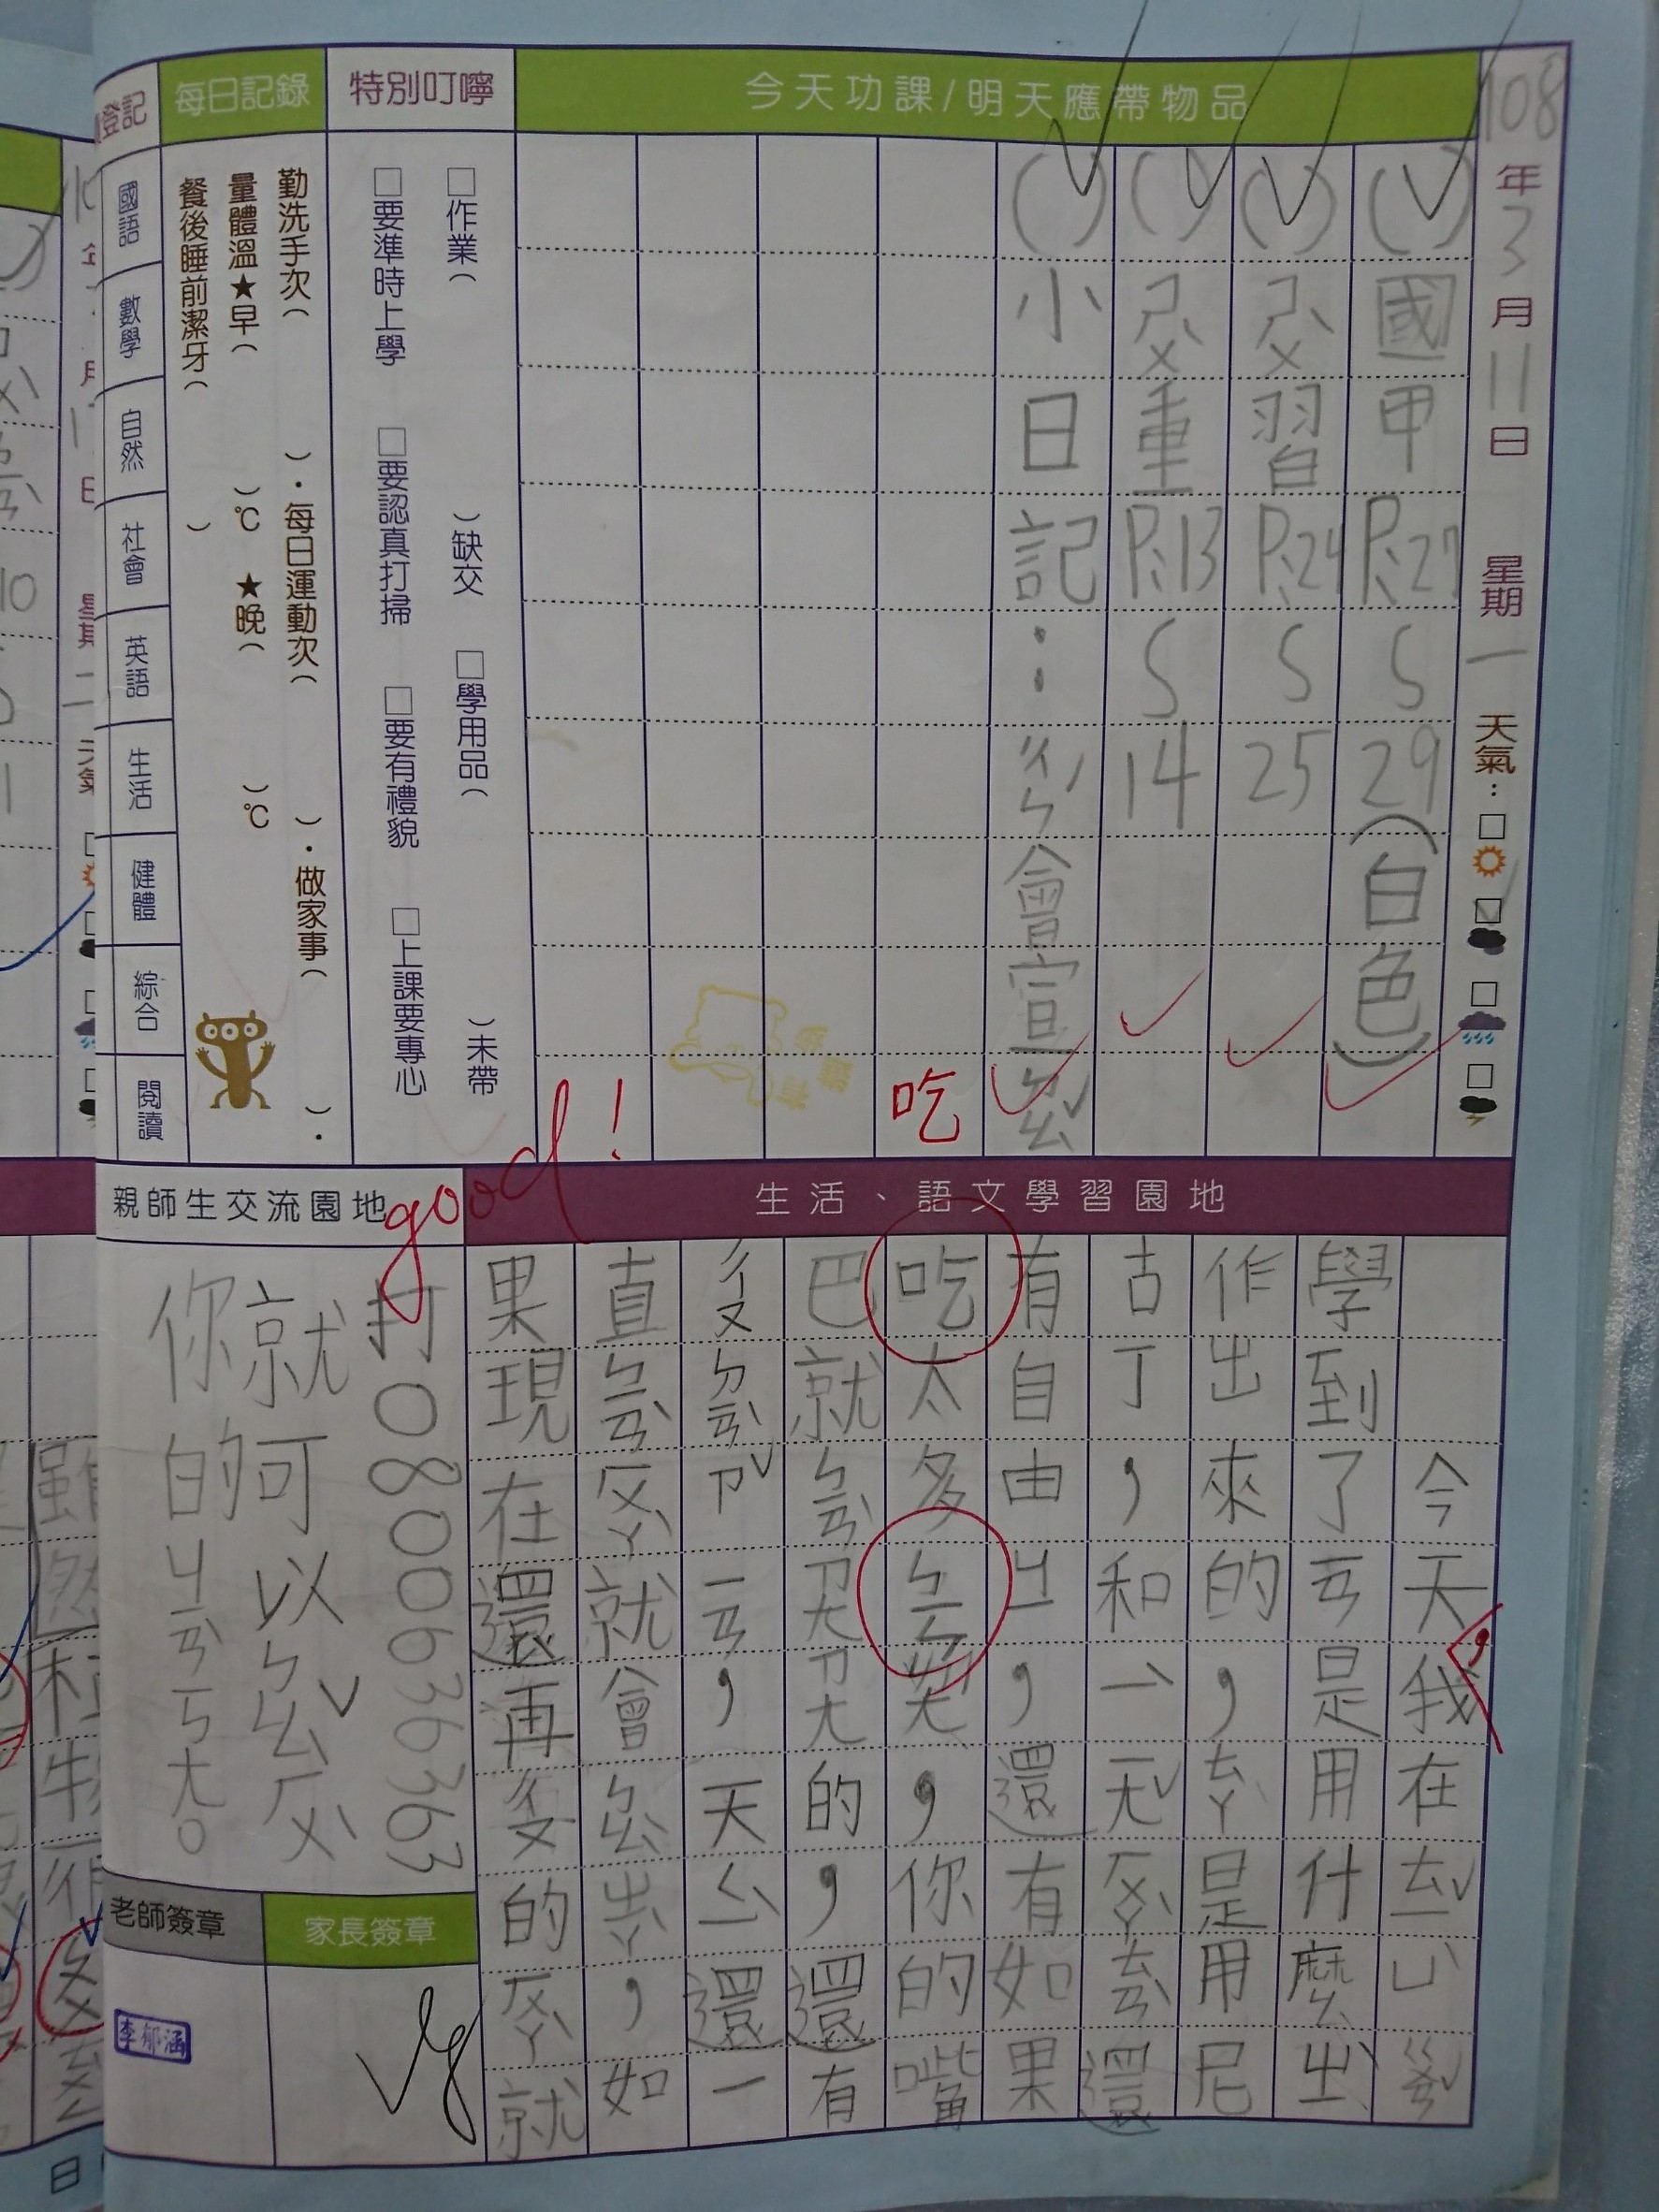 108年3月11日 星期一 天氣：
今天功課/明天應帶物品
(✓)國甲P.27~29(白色)
(✓)ㄕㄨˋ習P.24~25
(✓)ㄕㄨˋ重P.13~14
(✓)小日記：ㄔㄣˊ會宣ㄉㄠˇ
吃
特別叮嚀
□作業( )缺交 □學用品( )未帶
□要準時上學 □要認真打掃 □要有禮貌 □上課要專心
每日記錄
勤洗手次( )．每日運動次( )．做家事( )．
量體溫★早( )℃ ★晚( )℃
餐後睡前潔牙( )
登記
國語
數學
自然
社會
英語
生活
健體
綜合
閱讀
生活、語文學習園地
今天，我在ㄊㄧˇㄩˋㄍㄨㄢˇ
學到了ㄧㄢ是用什麼ㄓˋ
作出來的，ㄊㄚ是用尼
古丁，和一ㄧㄤˇㄏㄨㄚˋㄊㄢˋ還
有自由ㄐㄧ，還有如果
吃太多ㄅㄧㄥㄌㄤˊ，你的嘴
巴就ㄅㄧㄢˋㄗㄤㄗㄤ的，還有
ㄔㄡㄉㄧㄢˋㄗˇㄧㄢ，天ㄑㄧˋ還一
直ㄅㄧㄢˋㄏㄨㄚˋ就會ㄅㄠˋㄓㄚˋ，如
果現在還再ㄔㄡ的ㄏㄨㄚˋ就
good!
親師生交流園地
打0800636363
就可以ㄅㄠˇㄏㄨˋ
你的ㄐㄧㄢˋㄎㄤ。
家長簽章
老師簽章
李郁涵